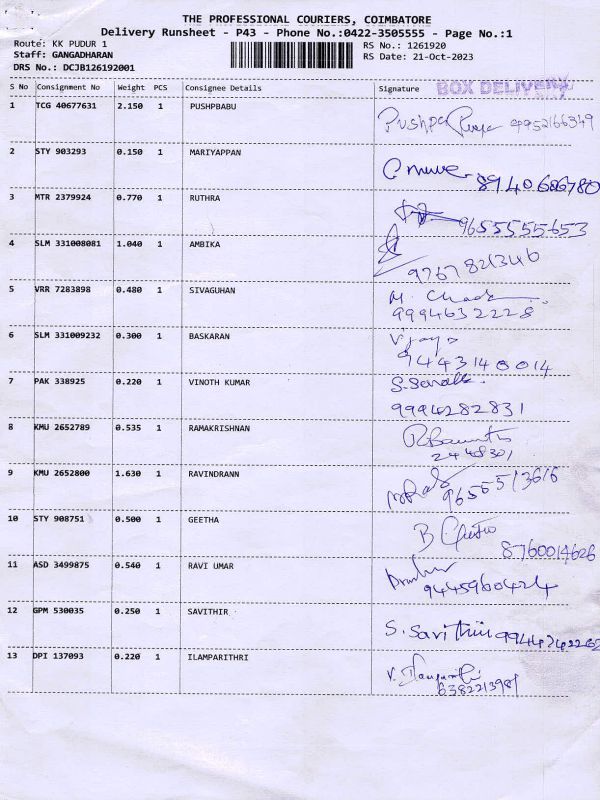 THE PROFESSIONAL COURIERS, COIMBATORE
Delivery Runsheet - P43 - Phone No.:0422-3505555 - Page No.:1
Route: KK PUDUR 1 RS No.: 1261920
Staff: GANGADHARAN RS Date: 21-Oct-2023
DRS No.: DCJB126192001
S No Consignment No Weight PCS Consignee Details Signature BOX DELIVERY
1 TCG 40677631 2.150 1 PUSHPBABU
Pushpa 9952166349
2 STY 903293 0.150 1 MARIYAPPAN
8940606780
3 MTR 2379924 0.770 1 RUTHRA
9655555653
4 SLM 331008081 1.040 1 AMBIKA
9767821346
5 VRR 7283898 0.480 1 SIVAGUHAN
9994632228
6 SLM 331009232 0.300 1 BASKARAN
Vijaya
9443140014
7 PAK 338925 0.220 1 VINOTH KUMAR
9994282831
8 KMU 2652789 0.535 1 RAMAKRISHNAN
2448301
9 KMU 2652800 1.630 1 RAVINDRANN
9655513616
10 STY 908751 0.500 1 GEETHA
8760014626
11 ASD 3499875 0.540 1 RAVI UMAR
9445960424
12 GPM 530035 0.250 1 SAVITHIR
S. Savithiri
13 DPI 137093 0.220 1 ILAMPARITHRI
6382213981